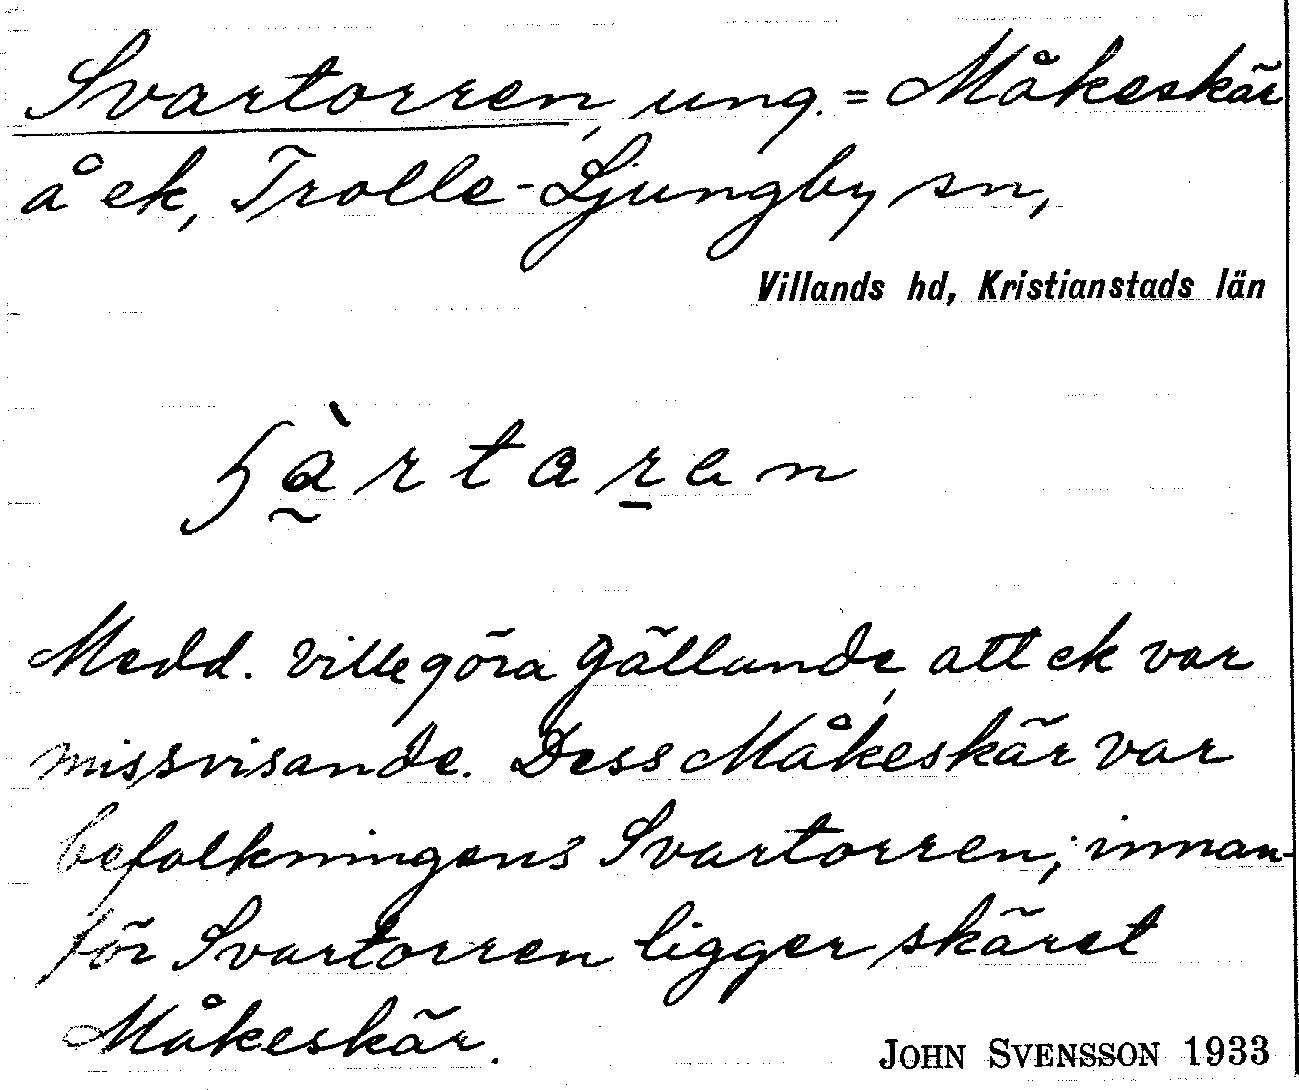 Svartorren, ung. = Måkeskär
å ek, Trolle-Ljungby sn,
Villands hd, Kristianstads län
Medd. ville göra gällande, att ek var
missvisande. Dess Måkeskär var
befolkningens Svartorren; innan-
för Svartorren ligger skäret
Måkeskär.
JOHN SVENSSON 1933